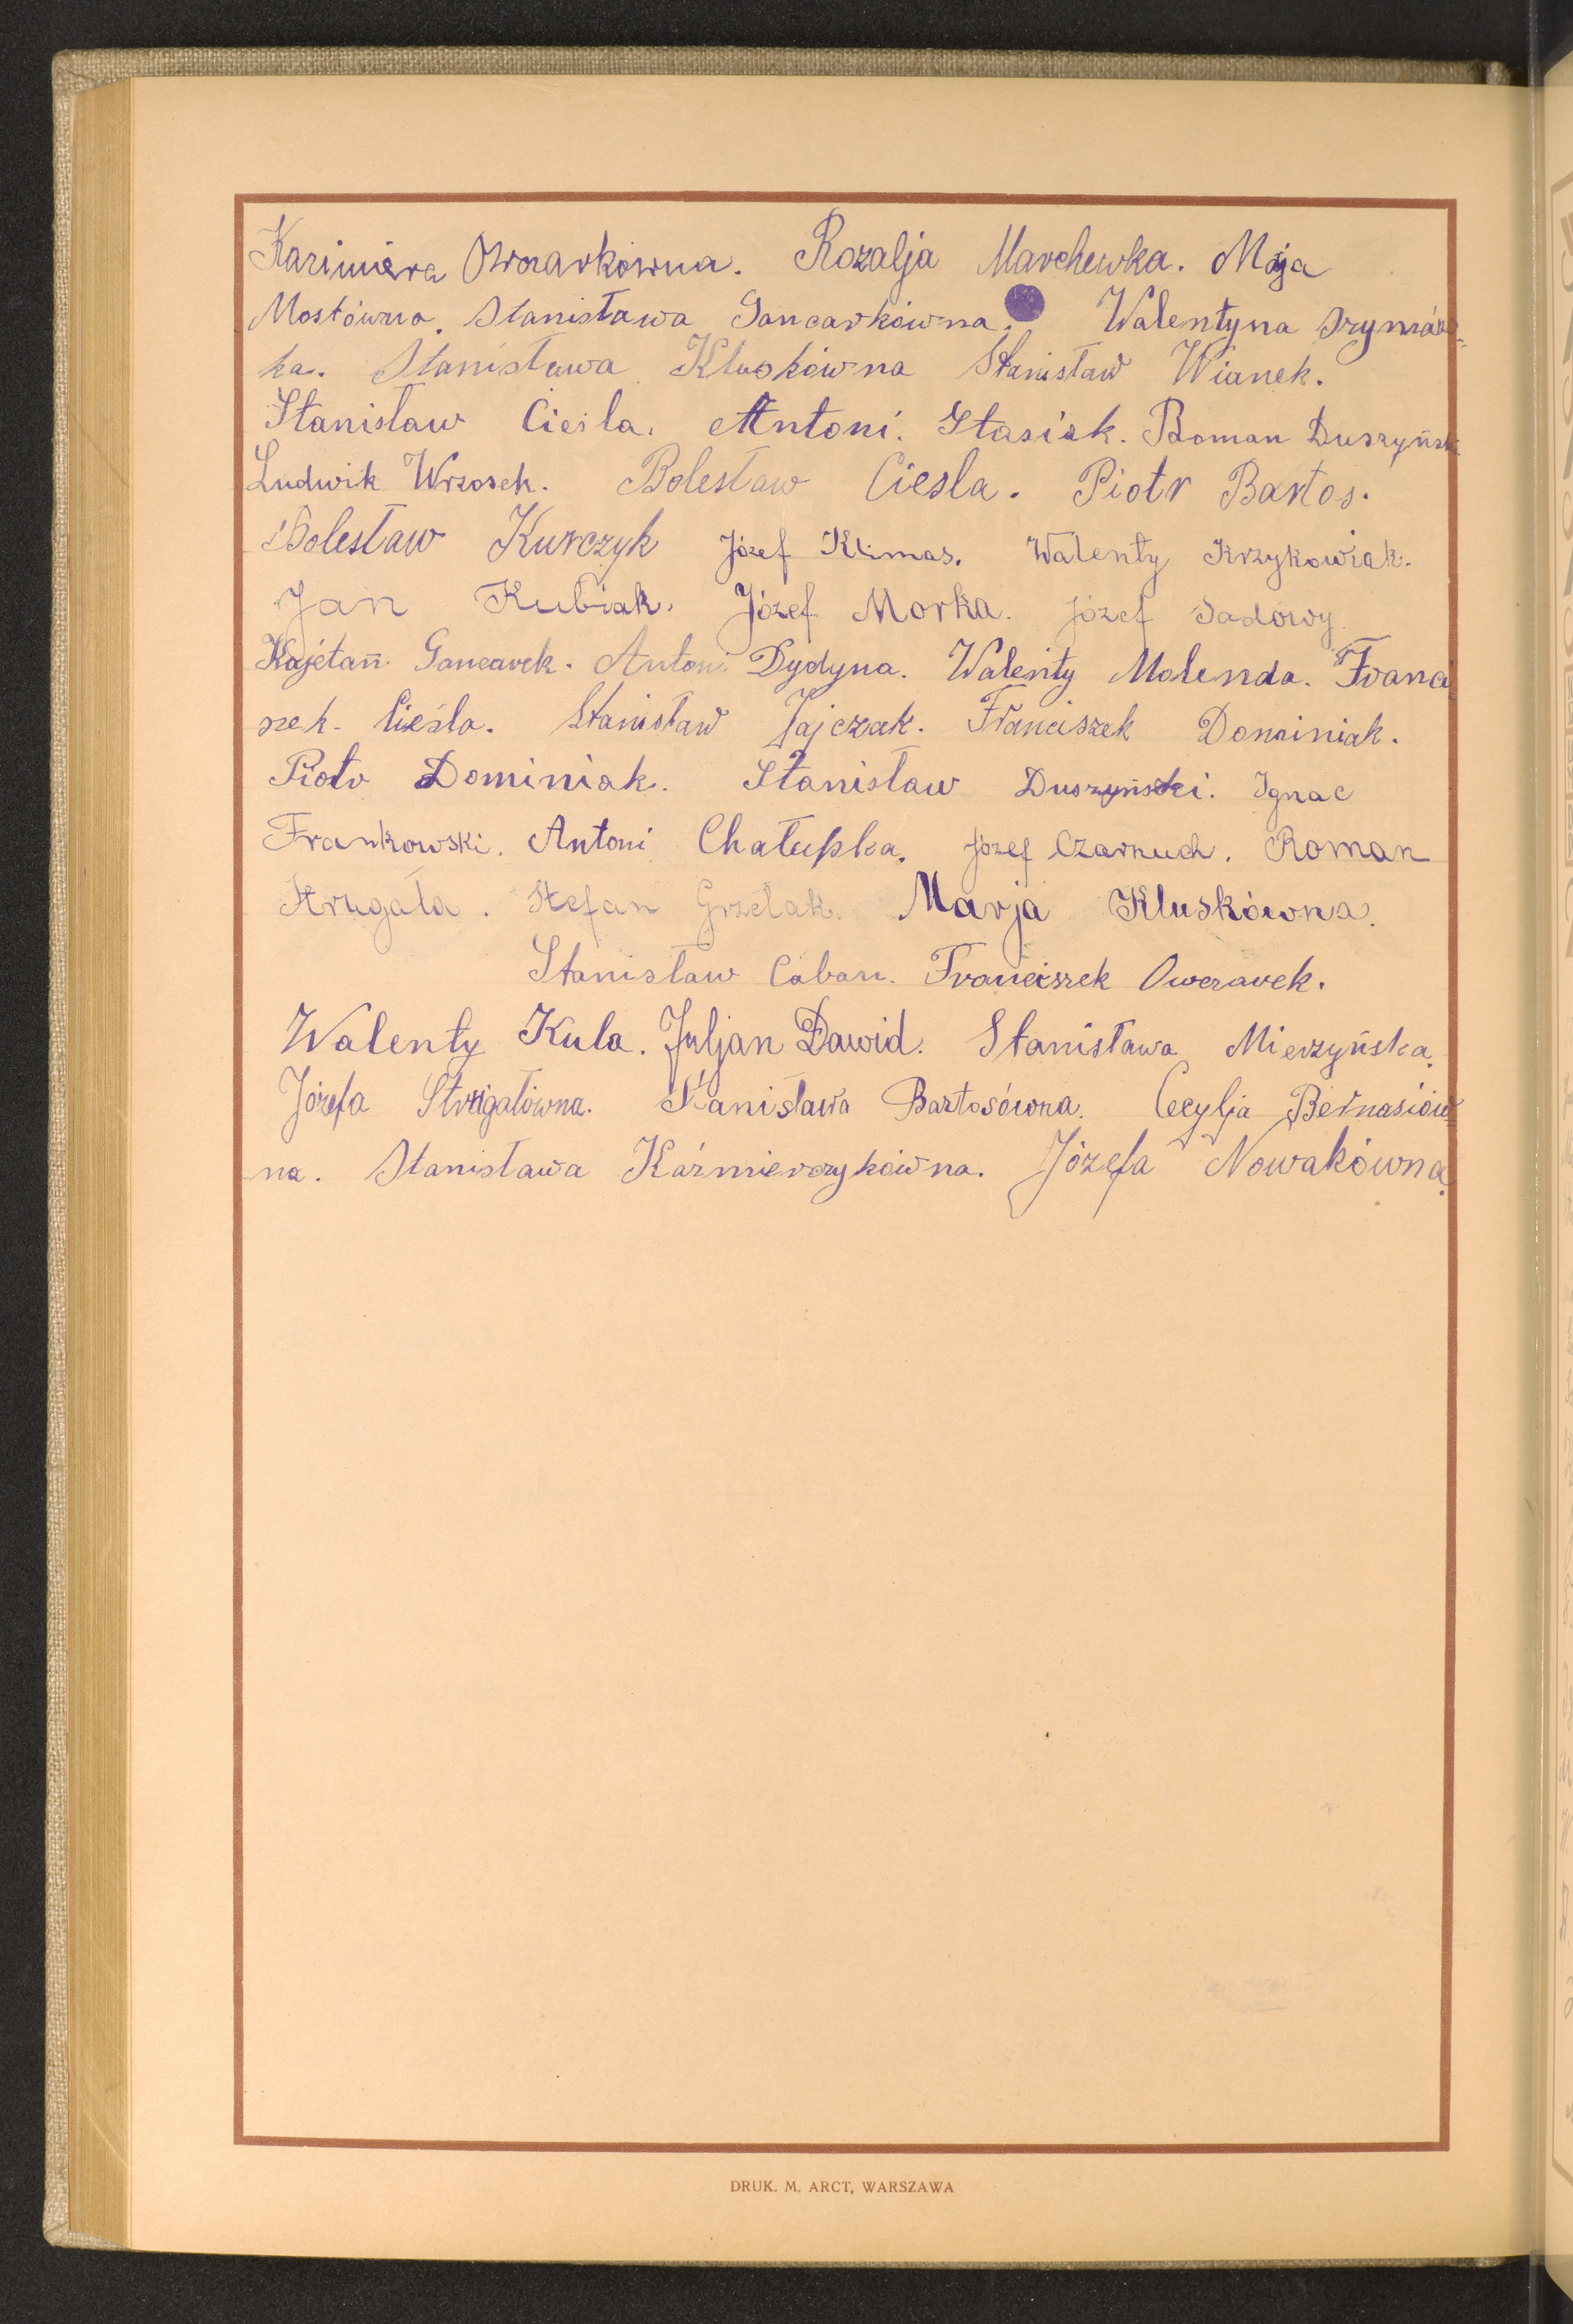 Kazimiera Owczarkówna. Rozalja Marchewka. Maja
Mostówna. Stanisława Gancarkówna. Walentyna Szymań-
ka. Stanisława Kluskówna Stanisław Wianek.
Stanisław Cieśla. Antoni. Stasiak. Roman Duszyński
Ludwik Wrzosek. Bolesław Ciesla. Piotr Bartos.
Bolesław Kurczyk Józef Klimas. Walenty Krzykowiak.
Jan Kubiak. Józef Morka. Józef Sadowy.
Kajetan Gancarek. Antoni Dydyna. Walenty Molenda. Franci
szek. Cieśla. Stanisław Jajczak. Franciszek Dominiak.
Piotr Dominiak. Stanisław Duszyński. Ignac
Frankowski. Antoni Chałupka. Józef Czarnuch. Roman
Strugała. Stefan Grzelak. Marja Kluskówna.
Stanisław Caban. Franciszek Owczarek.
Walenty Kula. Juljan Dawid. Stanisława Mierzyńska.
Józefa Strugałówna. Stanisława Bartosówna. Cecylja Bernasiów
na. Stanisława Kaźmierczykówna. Józefa Nowakówna.
DRUK. M. ARCT, WARSZAWA